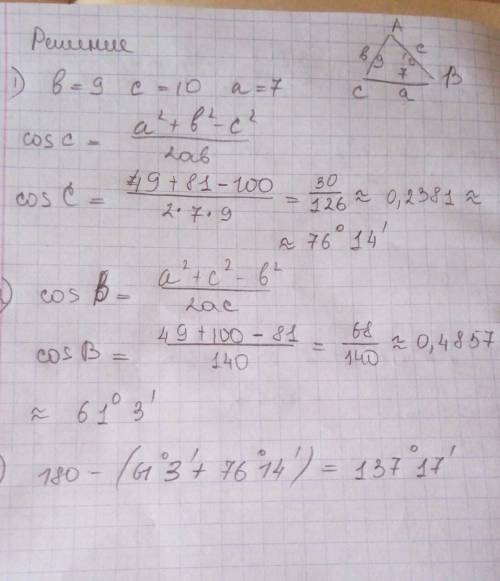 Решение
A
в 9 10 c
7
C a B
1) в = 9 c = 10 a = 7
cos C = (a² + в² - c²) / 2ab
cos C = (49 + 81 - 100) / (2 · 7 · 9) = 30/126 ≈ 0,2381 ≈
≈ 76° 14'
) cos B = (a² + c² - в²) / 2ac
cos B = (49 + 100 - 81) / 140 = 68/140 ≈ 0,4857
≈ 61° 3'
) 180 - (61° 3' + 76° 14') = 137° 17'